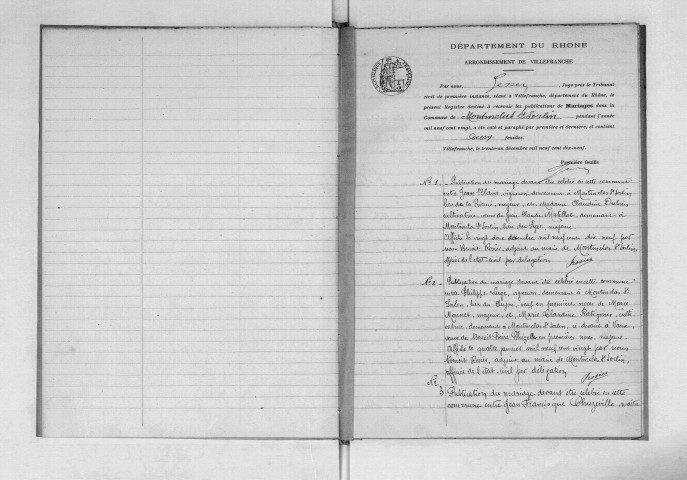 DÉPARTEMENT DU RHONE
ARRONDISSEMENT DE VILLEFRANCHE
Par nous, Juge près le Tribunal
civil de première instance, séant à Villefranche, département du Rhône, le
présent Registre destiné à recevoir les publications de Mariages dans la
Commune de Montmelas St Sorlin pendant l'année
mil neuf cent vingt, a été coté et paraphé par première et dernière, et contient
deux feuilles.
Villefranche, le trente-un décembre mil neuf cent dix-neuf.
Première feuille
No 1. Publication de mariage devant être célébré en cette commune
entre Jean vigneron, demeurant à Montmelas St Sorlin,
lieu de la majeur, et Madame Claudine
cultivatrice, veuve de Jean Claude demeurant à
Montmelas St Sorlin, lieu du majeure.
Affiché le vingt deux décembre mil neuf cent dix neuf par
nous Benoit Rosier, adjoint au maire de Montmelas St Sorlin,
officier de l'état civil par délégation Rosier
No 2. Publication de mariage devant être célébré en cette commune
entre Philippe vigneron, demeurant à Montmelas St
Sorlin, lieu du veuf en premières noces de Marie
majeur, et Marie Claudine culti
vatrice demeurant à Montmelas St Sorlin, et avant à
veuve de Benoit en premières noces, majeure.
Affiché le quatre janvier mil neuf cent vingt par nous
Benoit Rosier, adjoint au maire de Montmelas St Sorlin,
officier de l'état civil par délégation Rosier
No
3 Publication du mariage devant être célébré en cette
commune entre Jean Francisque